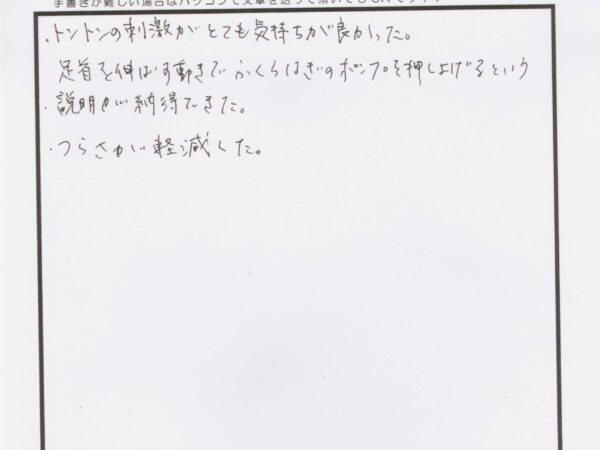 手書きが難しい場合はパソコンで文章を送って頂いてもOKです!!
・トントンの刺激がとても気持ちが良かった。
足首を伸ばす動きでふくらはぎのポンプを押し上げるという
・説明が納得できた。
・つらさが軽減した。